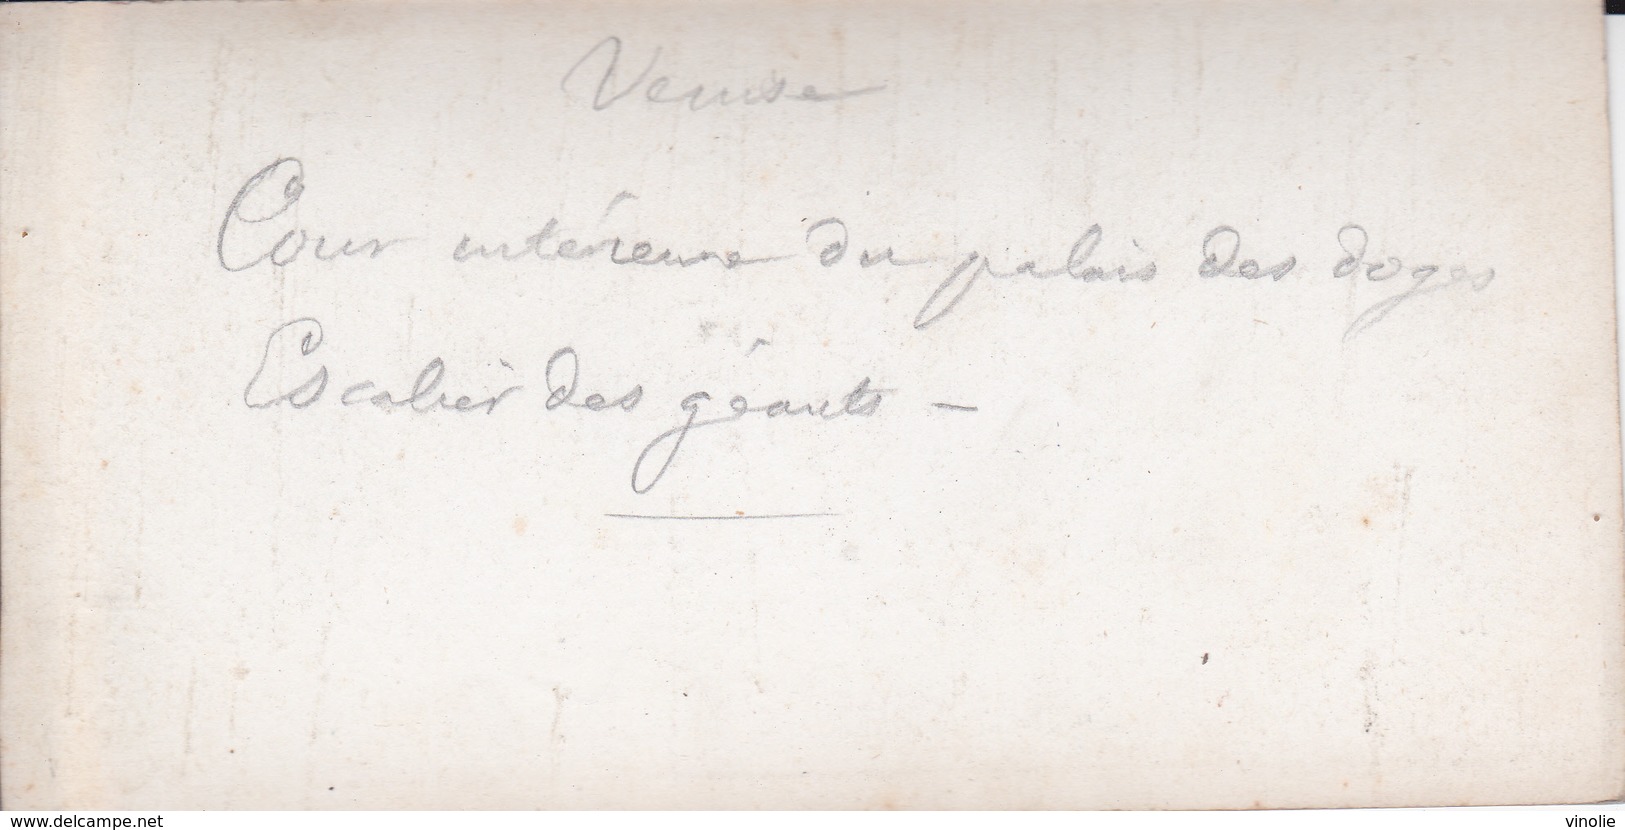 Venise
Cour intérieure du palais des doges
Escalier des géants –
www.delcampe.net
vinolie